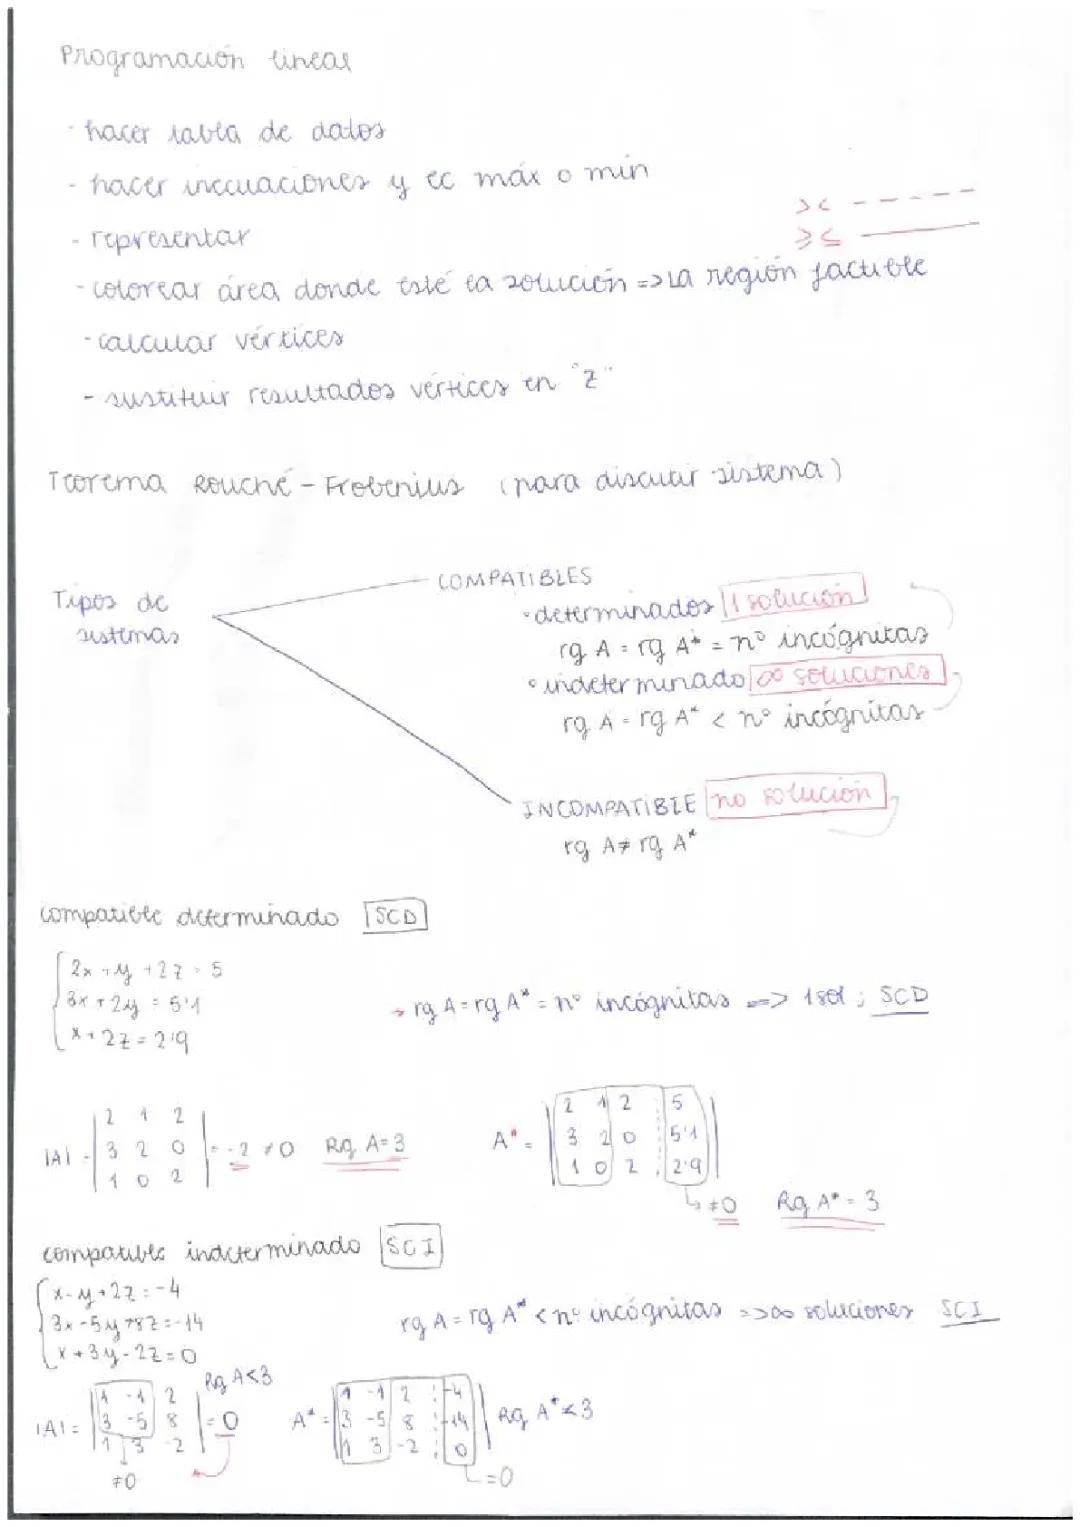 Programación lineal
- hacer tabla de datos
- hacer inecuaciones y ec máx o mín
> < - - - - - -
- representar
≥ ≤ ———
- colorear área donde esté la solución => La región factible
- calcular vértices
- sustituir resultados vértices en "Z"
Teorema Rouché - Frobenius (para discutir sistema)
Tipos de sistemas
COMPATIBLES
• determinados 1 solución
rg A = rg A* = nº incógnitas
• indeterminado ∞ soluciones
rg A = rg A* < nº incógnitas
INCOMPATIBLE no solución
rg A ≠ rg A*
compatible determinado SCD
2x + y + 2z = 5
3x + 2y = 5'1
x + 2z = 2'9
→ rg A = rg A* = nº incógnitas => 1 sol ; SCD
|A| = | 2 1 2 | 3 2 0 | 1 0 2 | = -2 ≠ 0 Rg A = 3
A* = | 2 1 2 5 | 3 2 0 5'1 | 1 0 2 2'9 |
↳ ≠ 0 Rg A* = 3
compatible indeterminado SCI
x - y + 2z = -4
3x - 5y + 8z = -14
x + 3y - 2z = 0
rg A = rg A* < nº incógnitas => ∞ soluciones SCI
|A| = | 1 -1 2 | 3 -5 8 | 1 3 -2 | = 0 Rg A < 3
≠ 0
A* = | 1 -1 2 -4 | 3 -5 8 -14 | 1 3 -2 0 | Rg A* < 3
= 0